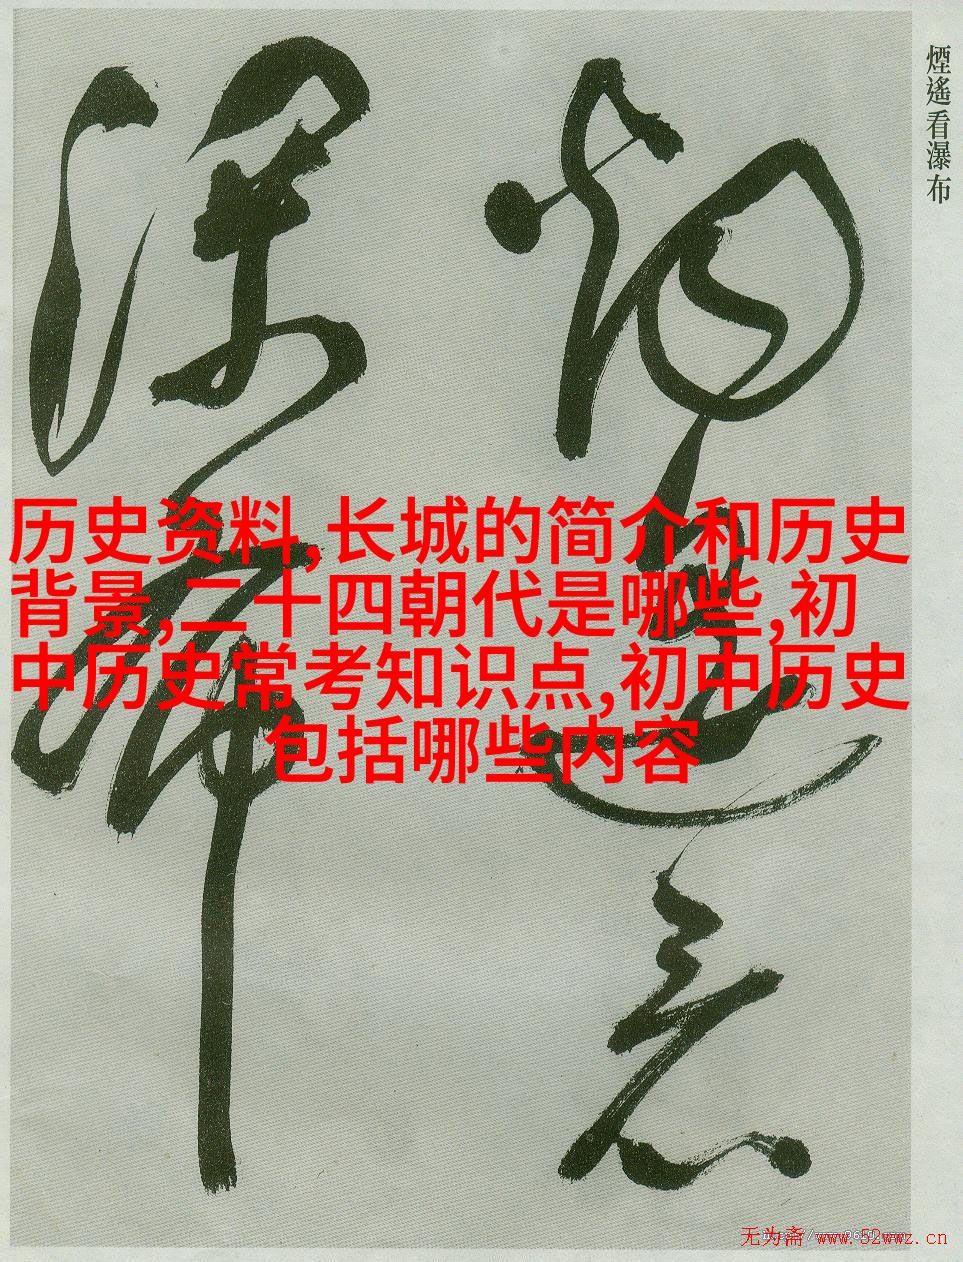 煙遙看瀑布
历史资料,长城的简介和历史
背景,二十四朝代是哪些,初
中历史常考知识点,初中历史
包括哪些内容
无为斋 www.52wwz.cn